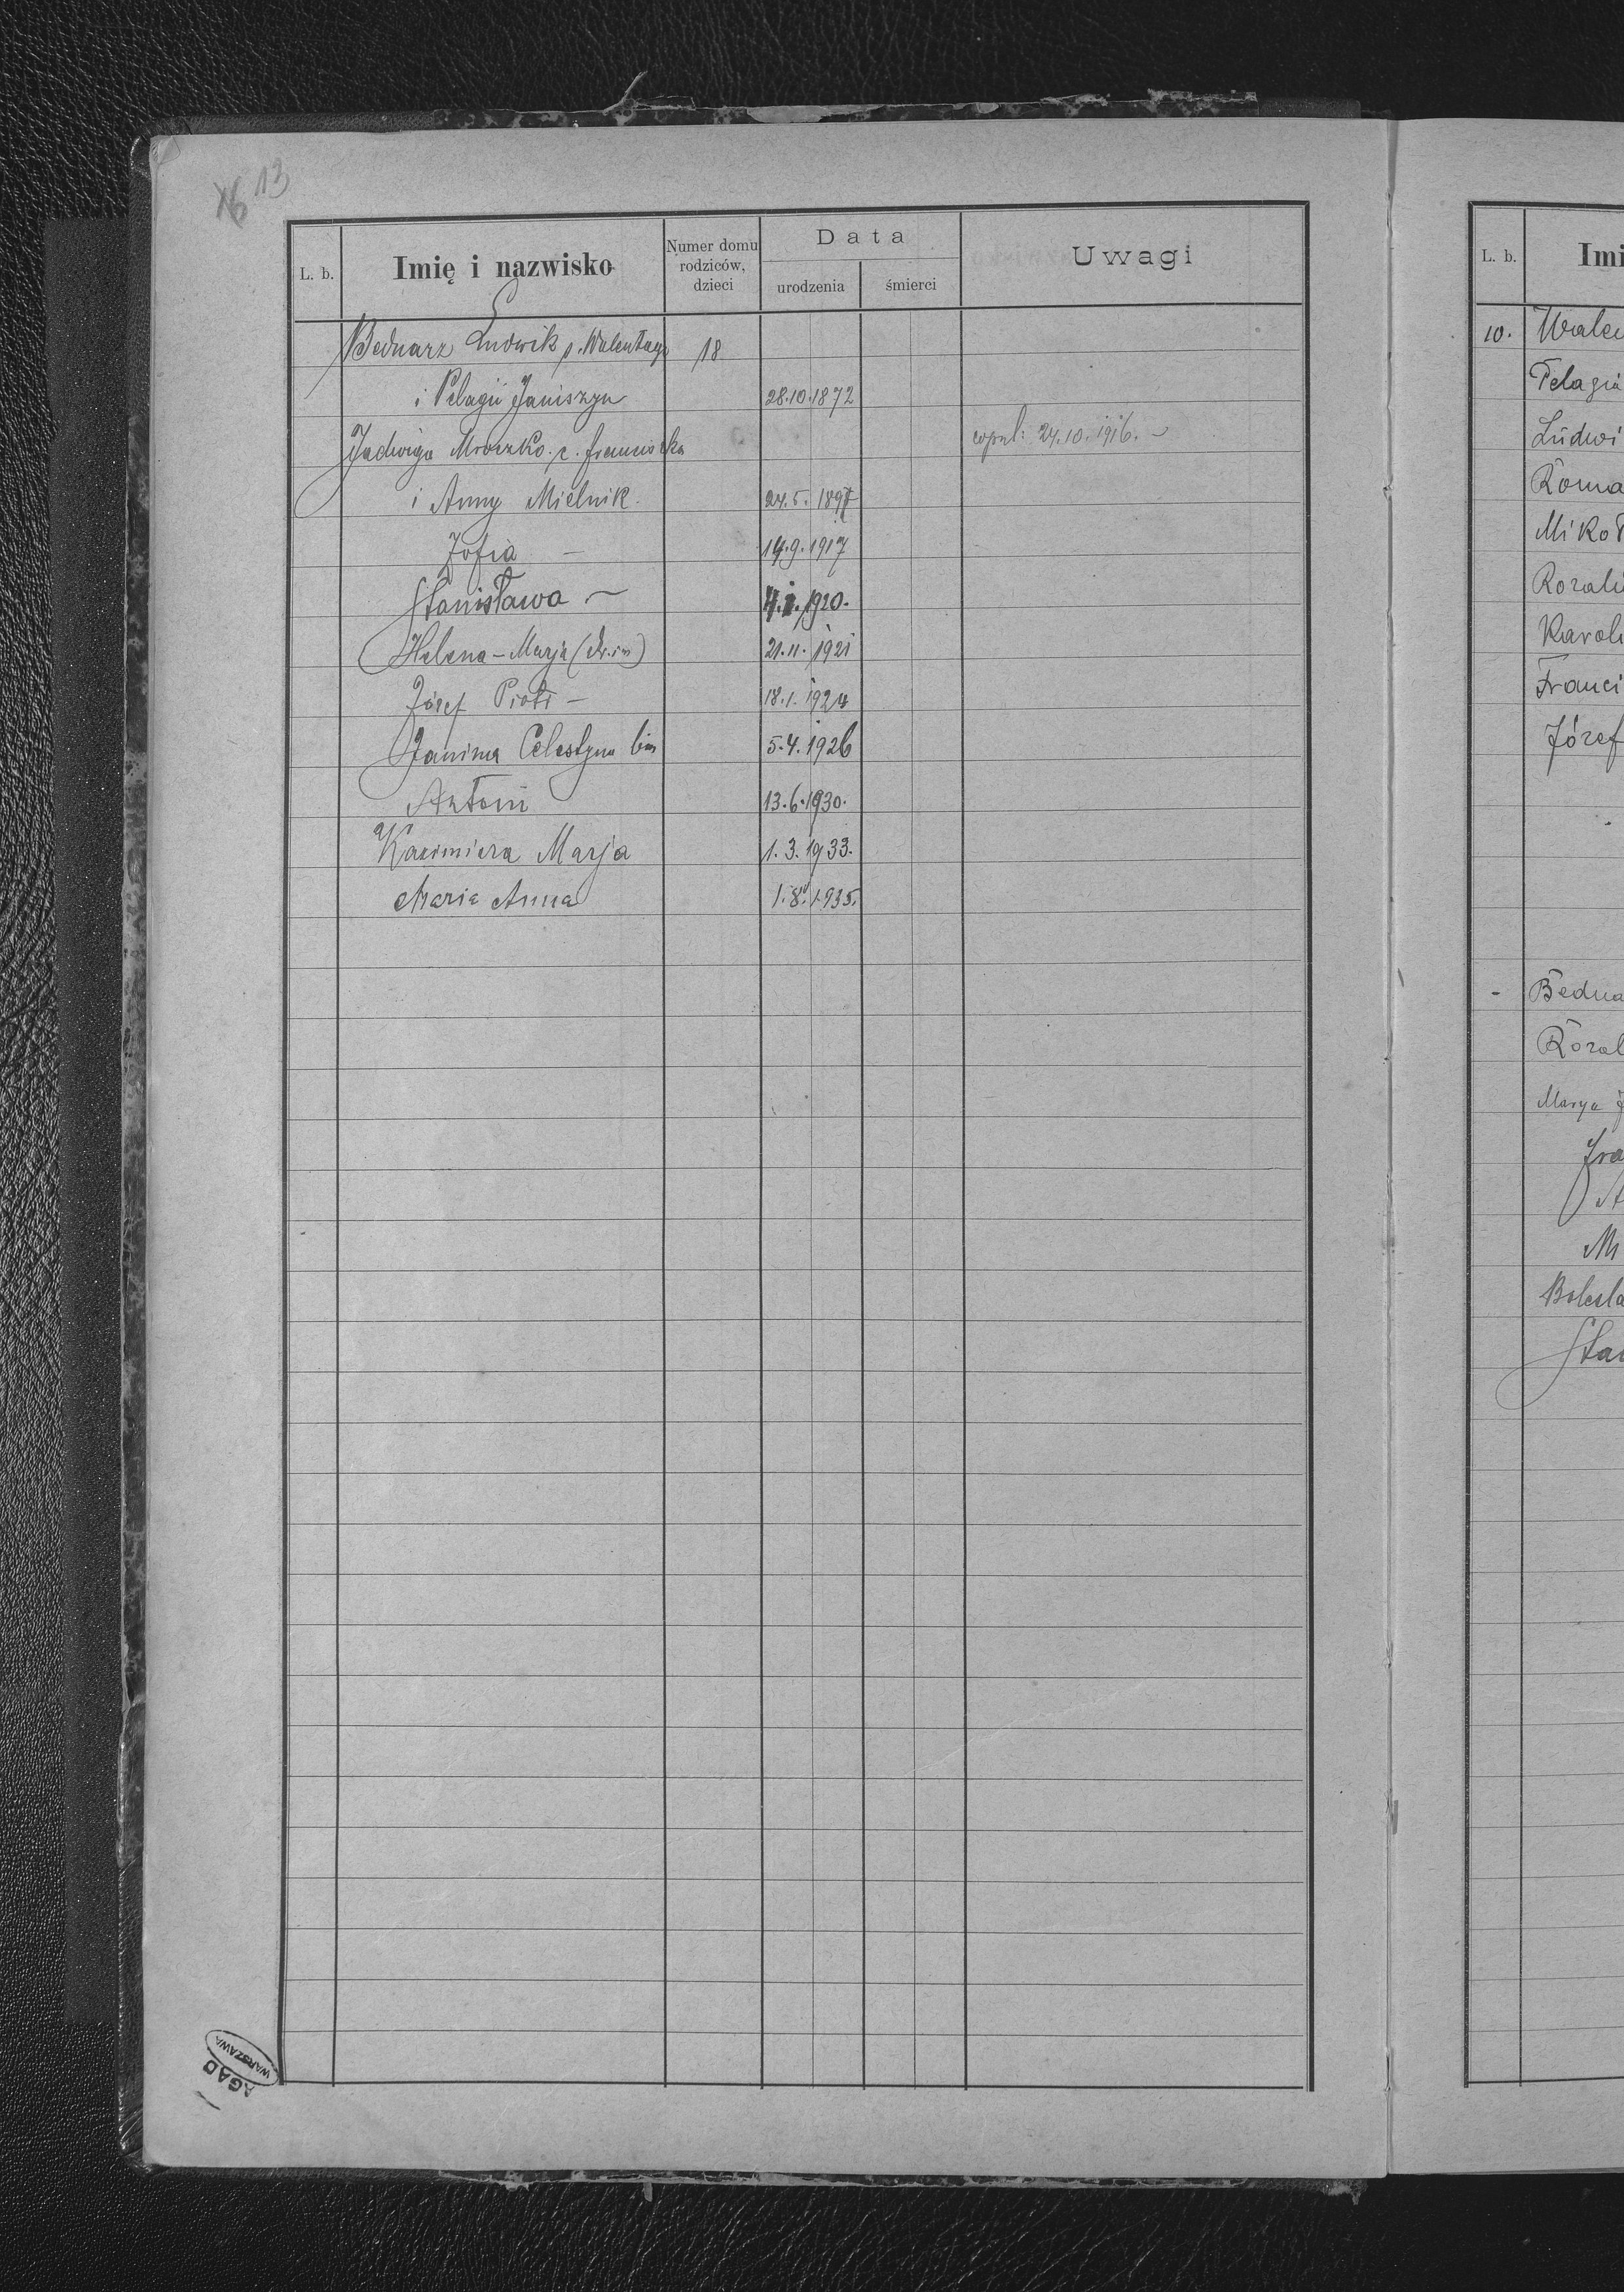 13
L. b. Imię i nazwisko Numer domu rodziców, dzieci Data urodzenia śmierci Uwagi
Bednarz Ludwik s. Walentego 18
i Pelagii Janiszyn 28.10.1872
Jadwiga Mroczko c. Franciszka copul: 24.10.1916.
i Anny Mielnik. 24.5.1897
Zofia – 14.9.1917
Stanisława – 1920.
Helena-Marja 21.11.1921
Józef Piotr – 18.1.1924
Janina Celestyna bim 5.4.1926
Antoni 13.6.1930.
Kazimiera Marja 1.3.1933.
Maria Anna 1.8.1935.
AGAD
WARSZAWA
L. b. Imi
10. Walen
Pelagia
Ludwi
Roma
Mikoł
Rozali
Karoli
Franci
Józef
- Bedna
Rozal
Marya
Fra
A
M
Bolesła
Sta